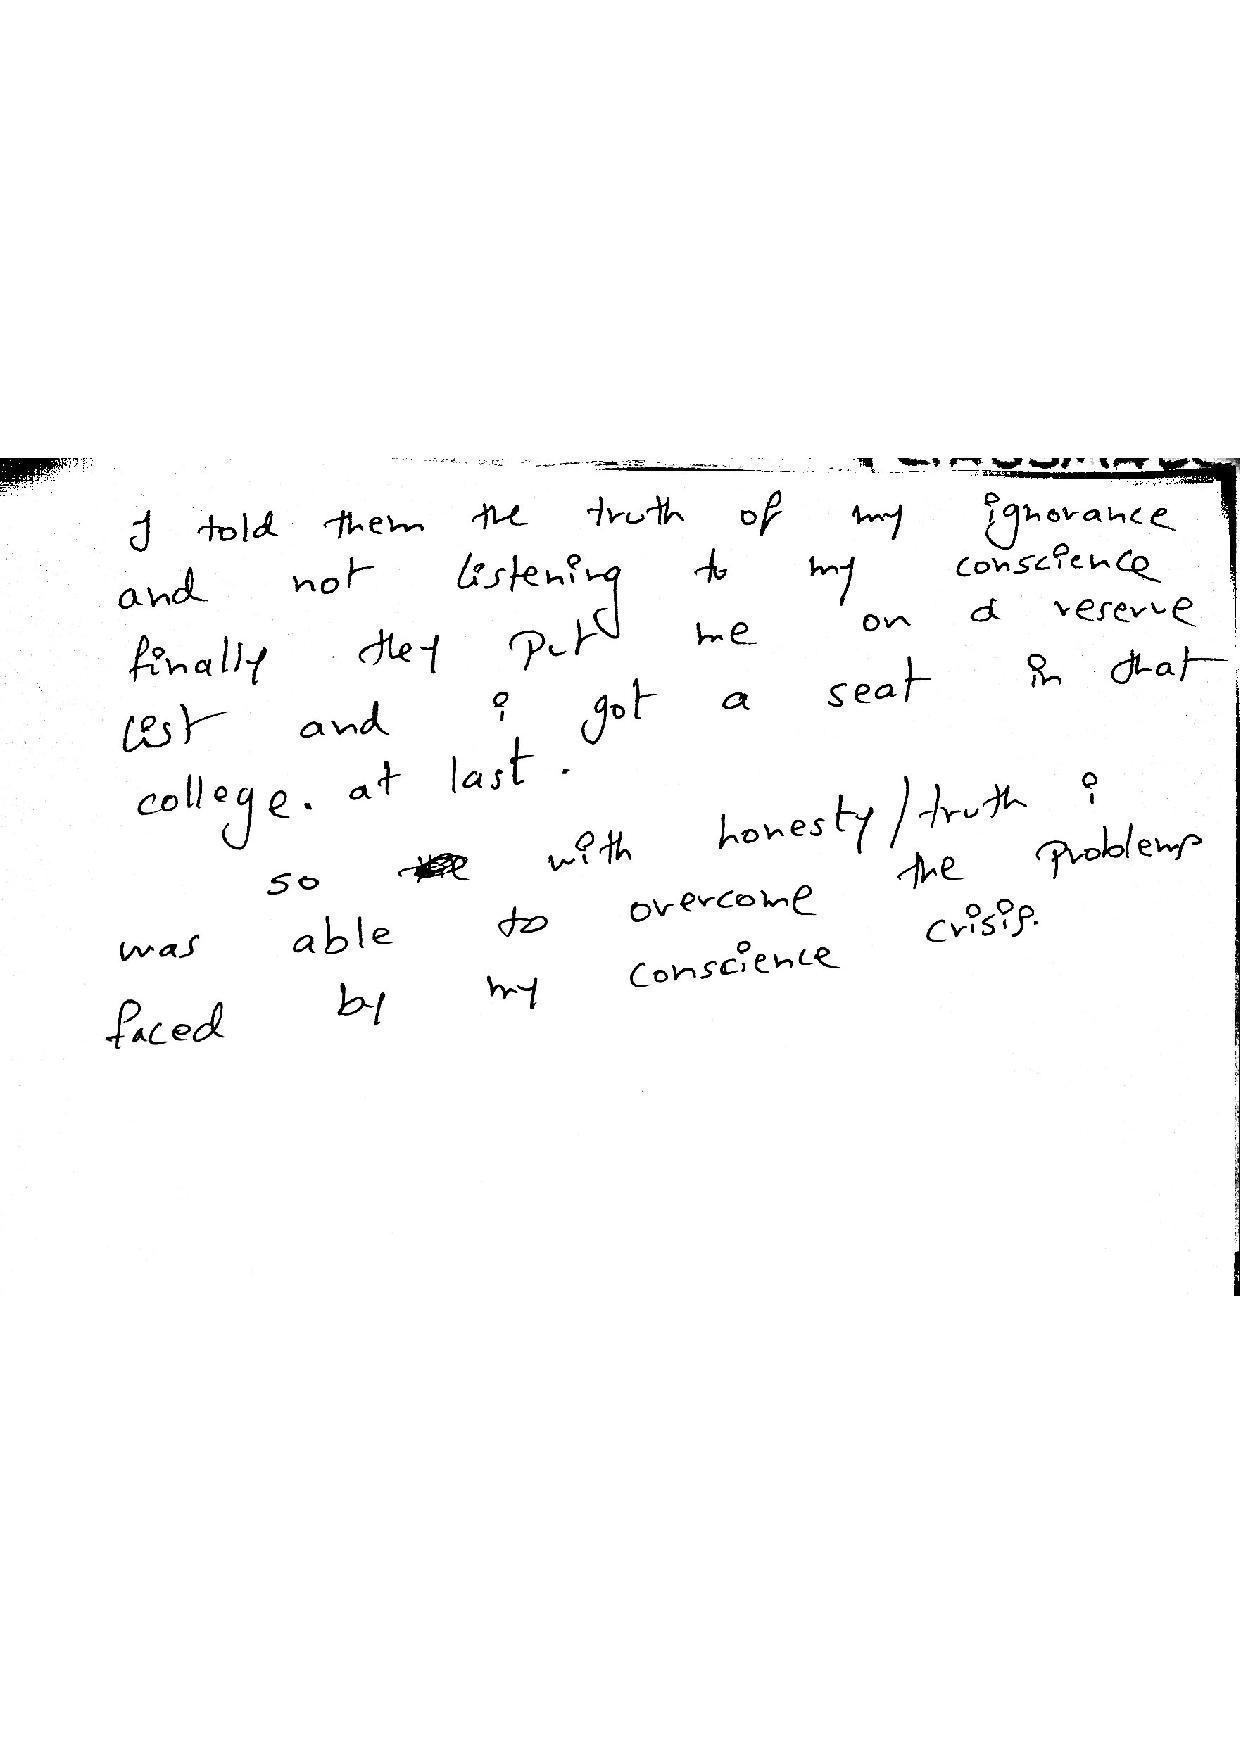 I told them the truth of my ignorance
and not listening to my conscience
finally they put me on a reserve
list and i got a seat in that
college. at last.
so with honesty/truth i
was able to overcome the problems
faced by my conscience crisis.